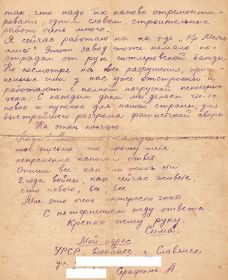 так, что надо их наново отремонти-
ровать, одним словом, строительных
работ очень много.
Я сейчас работаю на з-де "Кр.
лист". Этот завод тоже немало по-
страдал от рук гитлеровской банды.
Но несмотря на все разрушения,
цехи у нас уже отстроены и
работают с полной нагрузкой
С каждым днём мы делаем что-то
новое и нужное для нашей страны, для
быстрейшего разгрома фашистской своры.
На этом кончаю.
мое письмо, то прошу тебя,
непременно напиши ответ.
Опиши все: как ты жила эти
года войны, как сейчас живешь,
что нового, все, все.
Мне это очень интересно знать.
С нетерпением жду ответа
Крепко жму руку.
Сима.
Мой адрес
УРСР, Донбасс, г. Славянск
ул.
Серафима А.